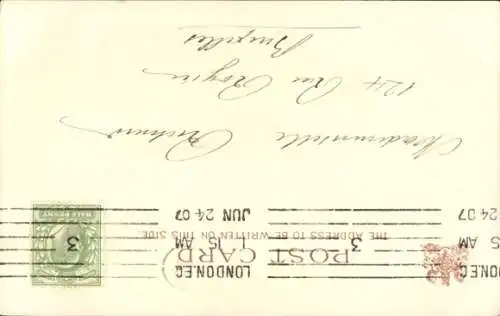 POST CARD
THE ADDRESS TO BE WRITTEN ON THIS SIDE
LONDON.E.C
1 15 AM
JUN 24 07
3
3
HALF PENNY
5 AM
24 07
Mademoiselle
124 Rue Royale
Bruxelles